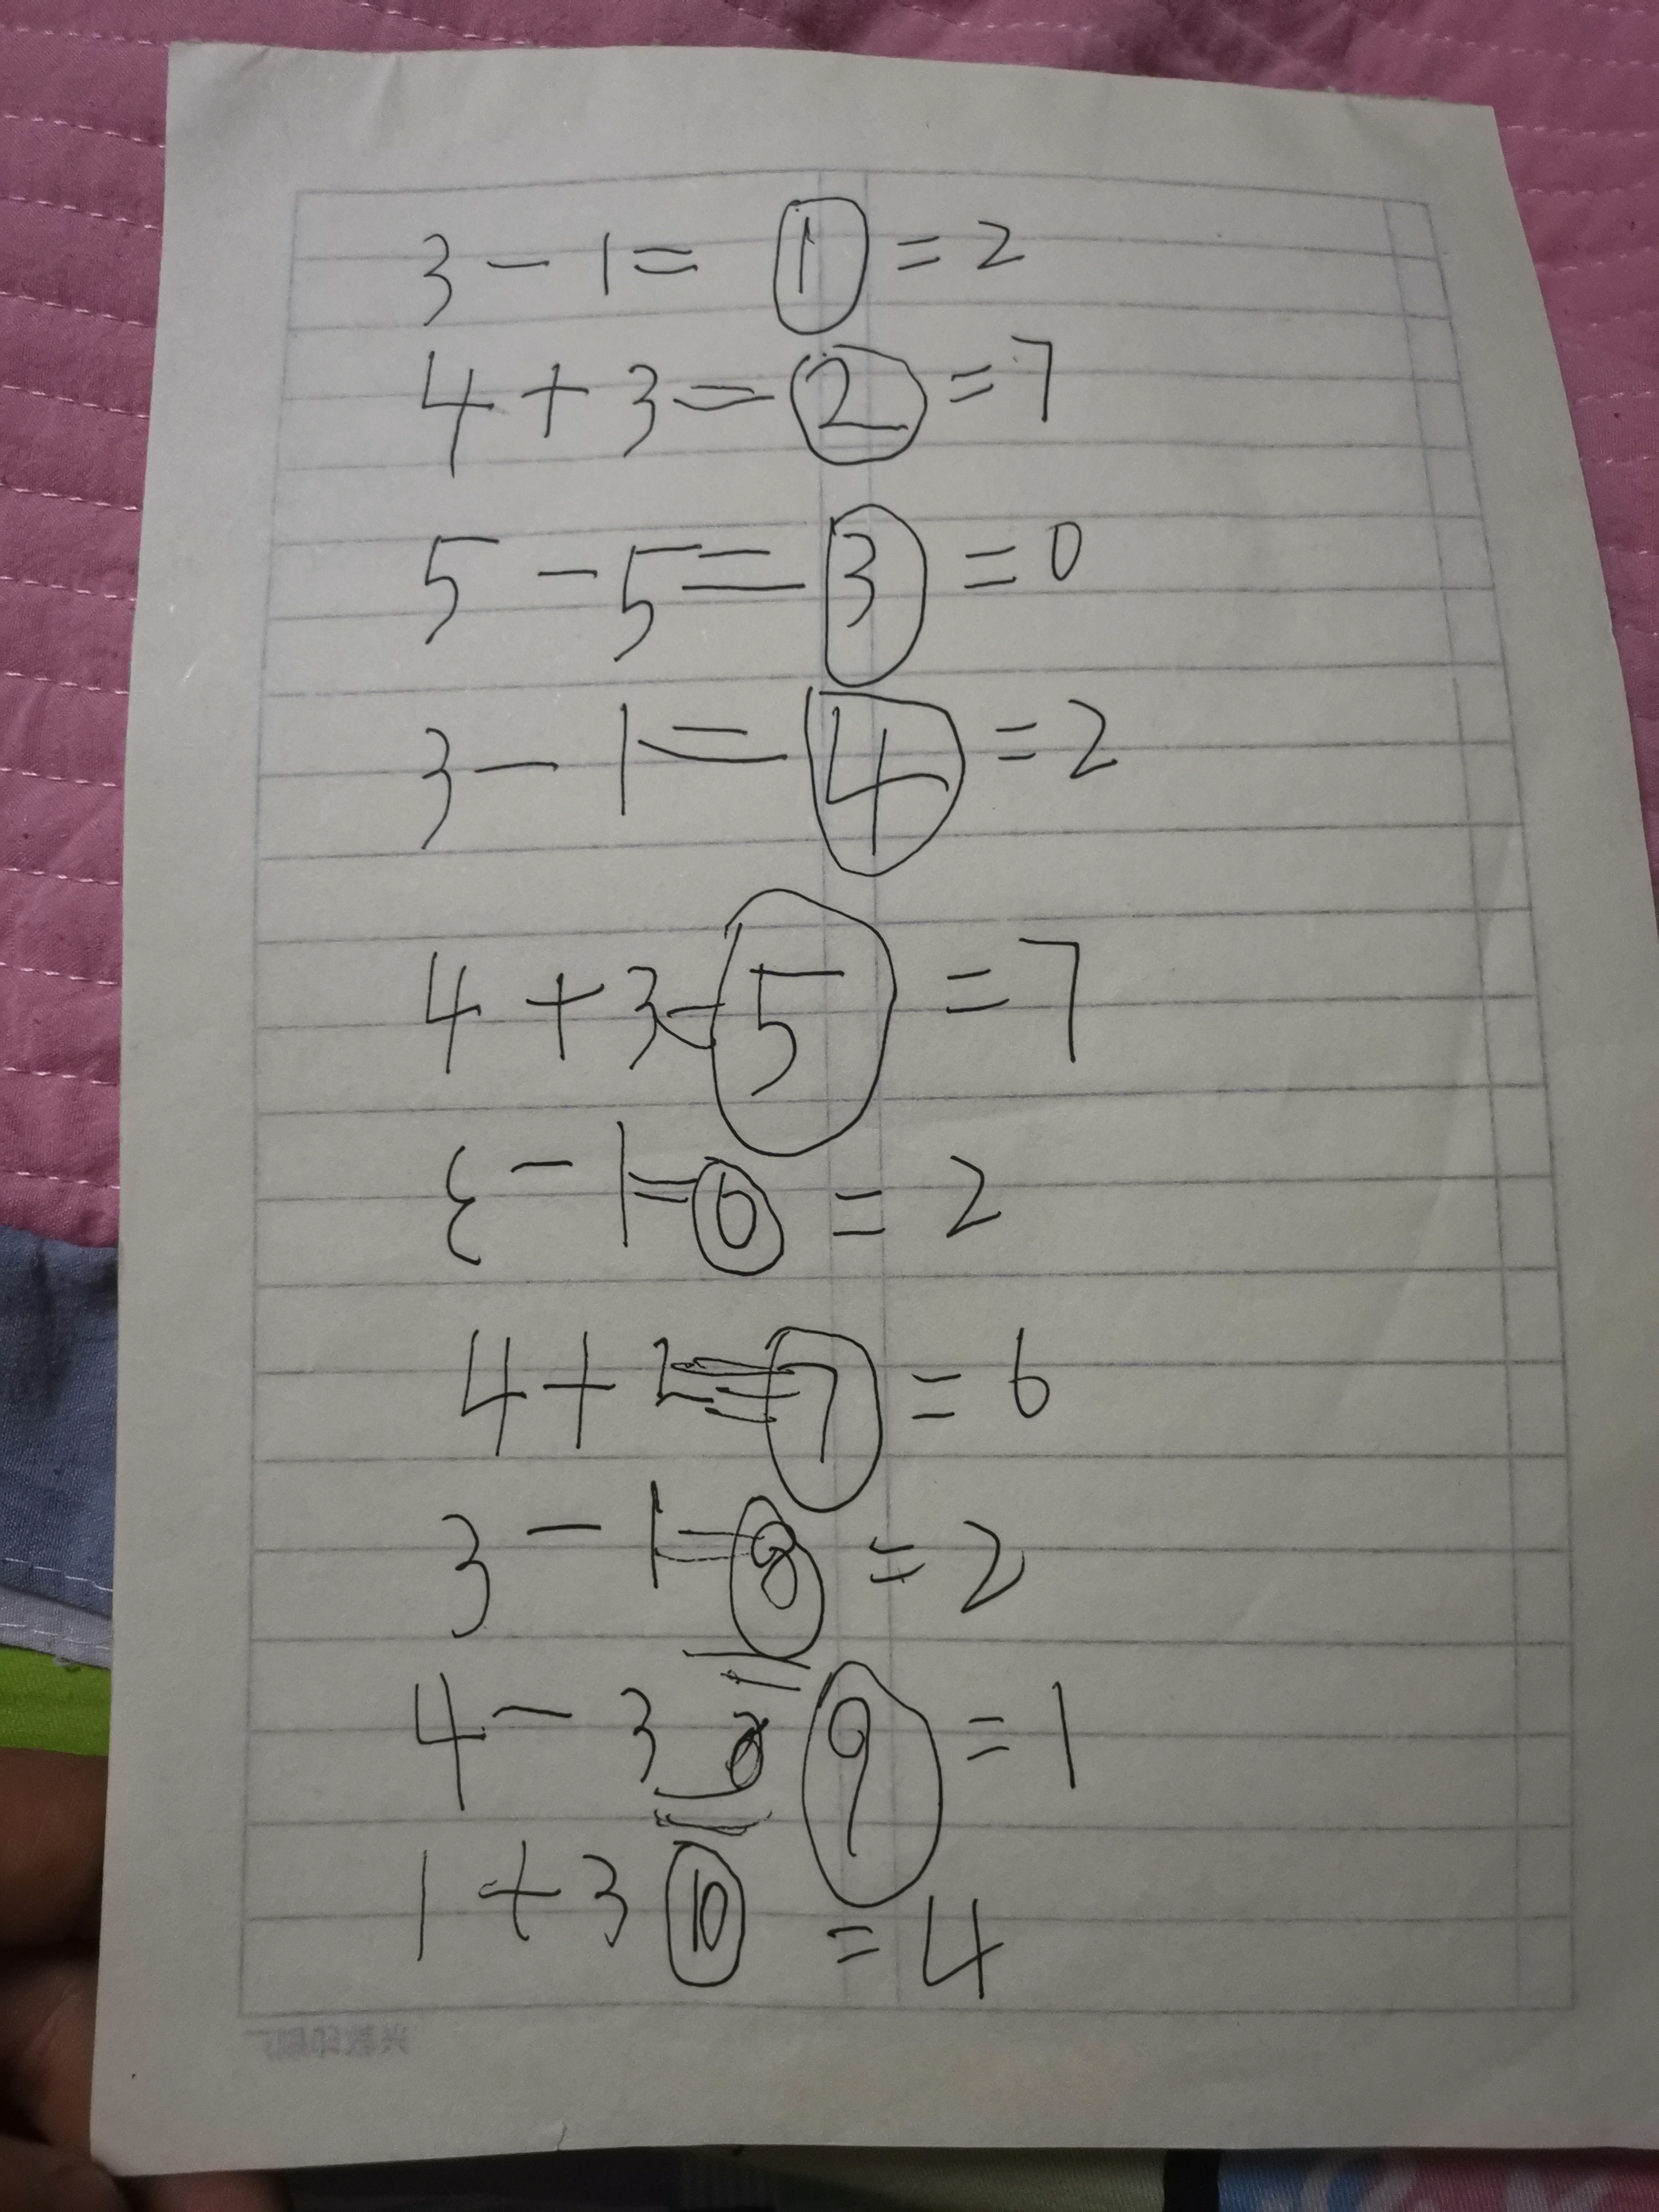 3-1= ① =2
4+3=② =7
5-5=③ =0
3-1=④ =2
4+3=⑤ =7
3-1=⑥ =2
4+2=⑦ =6
3-1=⑧ =2
4-3 ⑨ =1
1+3 ⑩ =4